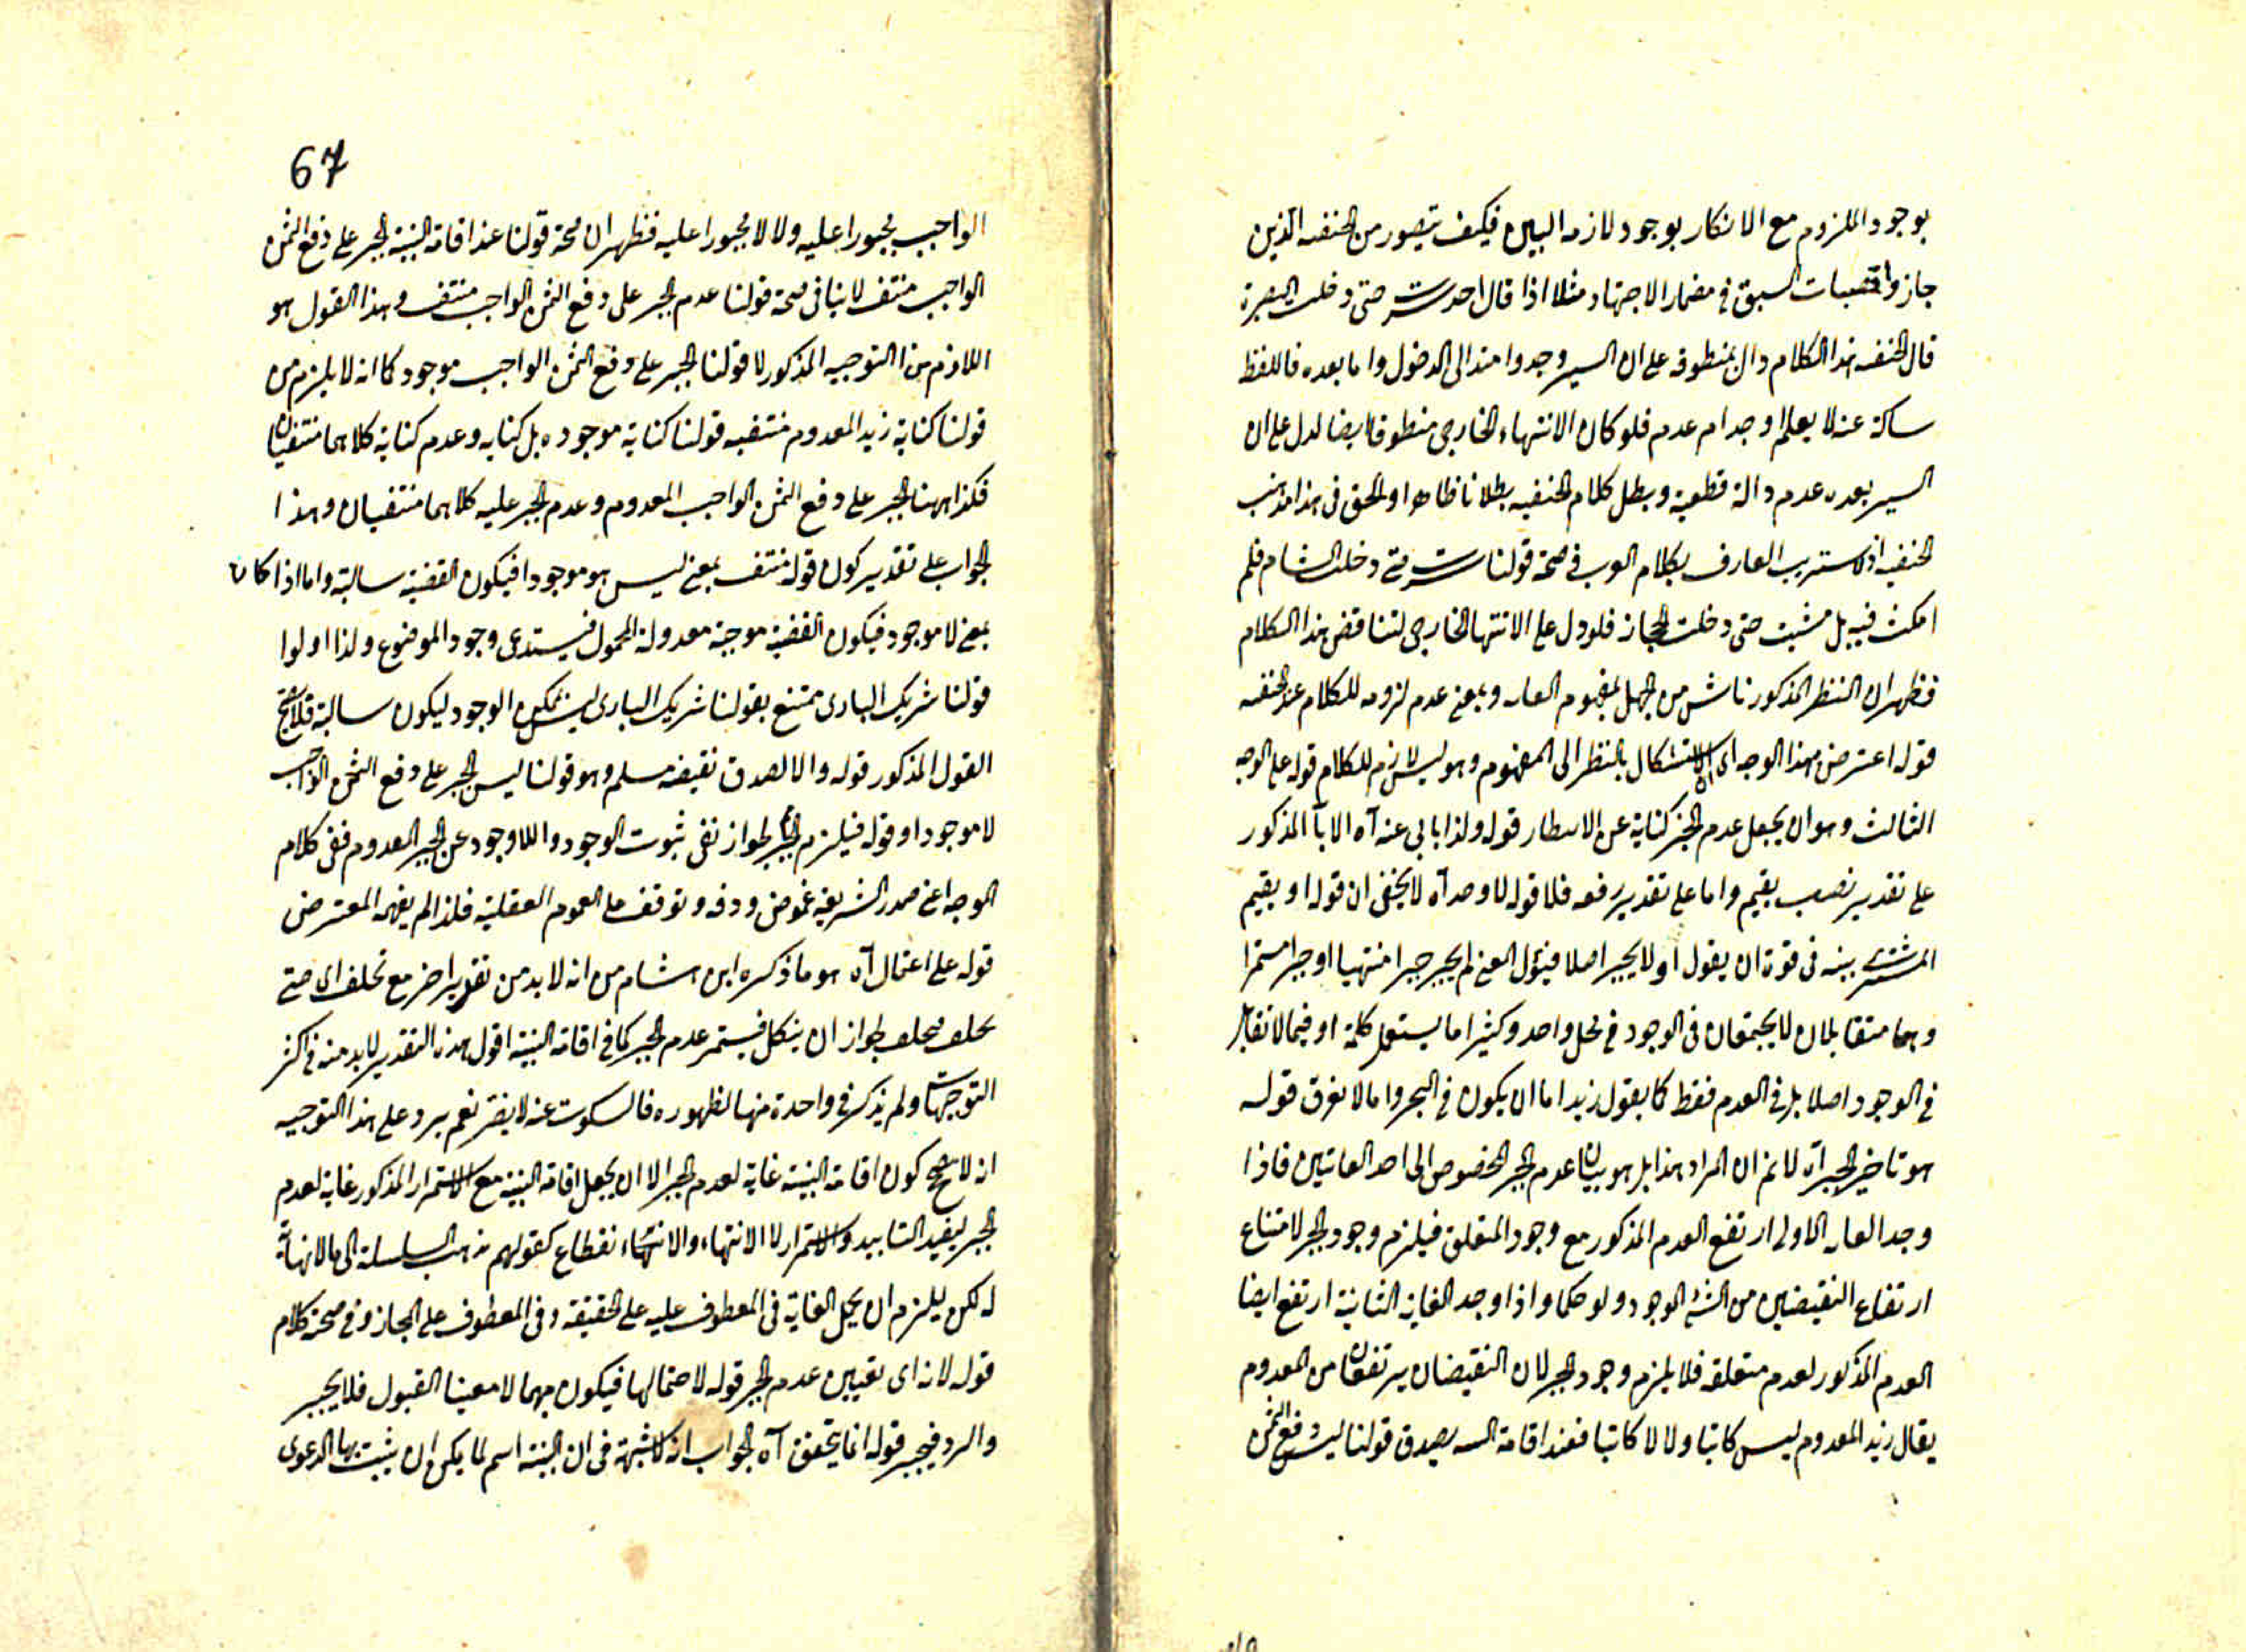 بوجود الملزوم مع الانكار بوجود لازمه البين فكيف يتصور من الحنفيه الذين
جازوا قصبات السبق في مضمار الاجتهاد مثلا اذا قال احد سرت حتى دخلت البصرة
قال الحنفيه هذا الكلام دال بمنطوقه على ان السير وجد وامتد الى الدخول واما بعده فاللفظ
ساكت عنه لا يعلم اوجد ام عدم فلو كان الانتهاء الخارجى منطوقا ايضا لدل على ان
السير بعده عدم دالة قطعية وبطل كلام الحنفيه بطلانا ظاهرا والحق فى هذا مذهب
الحنفيه اذ لا يستريب العارف بكلام العرب فى صحة قولنا سرت حتى دخلت الشام فلم
امكث فيه بل مشيت حتى دخلت الحجاز فلو دل على الانتهاء الخارجى لتناقض هذا الكلام
فظهر ان النظر المذكور ناش من الجهل بمفهوم الغايه وبمعنى عدم لزومه للكلام عند الحنفيه
قوله اعترض بهذا الوجه اى الاشكال بالنظر الى المفهوم وهو ليس لازم للكلام قوله على الوجه
الثالث وهو ان يجعل عدم الجبر كناية عن الانتظار قوله ولذا يابى عنه آه الاباء المذكور
على تقدير نصب يقيم واما على تقدير رفعه فلا قوله لا وحد آه لا يخفى ان قوله او يقيم
المشترى بينه فى قوة ان يقول اولا يجبر اصلا فيئول المعنى لم يجبر جبرا منتهيا او جبرا مستمرا
وهما متقابلان لا يجتمعان فى الوجود فى محل واحد وكثيرا ما يستعمل كلمة او فيما لا تقابل
فى الوجود اصلا بل فى العدم فقط كما يقول زيد اما ان يكون فى البحر واما لا يغرق قوله
هو تاخير الجبر آه لا نم ان المراد هذا بل هو بيان عدم الجبر المخصوص الى احد الغايتين فاذا
وجد الغايه الاولى ارتفع العدم المذكور مع وجود المتعلق فيلزم وجود الجبر لامتناع
ارتفاع النقيضين من الشئ الموجود ولو حكما واذا وجد الغاية الثانية ارتفع ايضا
العدم المذكور لعدم متعلقه فلا يلزم وجود الجبر لان النقيضان يرتفعان من المعدوم
يقال زيد المعدوم ليس كاتبا ولا لا كاتبا فعند اقامة البينه يصدق قولنا ليس دفع الثمن
67
الواجب مجبورا عليه ولا لا مجبورا عليه فظهر ان صحة قولنا عند اقامة البينة الجبر على دفع الثمن
الواجب منتف لا ينافى صحة قولنا عدم الجبر على دفع الثمن الواجب منتف وهذا القول هو
اللازم من التوجيه المذكور لا قولنا الجبر على دفع الثمن الواجب موجود كما انه لا يلزم من
قولنا كتابة زيد المعدوم منتفيه قولنا كتابة موجوده بل كتابه وعدم كتابة كلاهما منتفيان
فكذا ههنا الجبر على دفع الثمن الواجب المعدوم وعدم الجبر عليه كلاهما منتفيان وهذا
الجواب على تقدير كون قوله منتف بمعنى ليس هو موجودا فيكون القضية سالبة واما اذا كان
بمعنى لا موجود فيكون القضية موجبة معدولة المحمول فيستدعى وجود الموضوع ولذا اولوا
قولنا شريك البارى ممتنع بقولنا شريك البارى ليس بممكن الوجود ليكون سالبة فلا يصح
القول المذكور قوله والا لصدق نقيضه مسلم وهو قولنا ليس الجبر على دفع الثمن الواجب
لا موجودا وقوله فيلزم الجبر لجواز نفى ثبوت الوجود واللاوجود عن الجبر المعدوم ففى كلام
الموجه اعنى صدر الشريعة غموض ودقه وتوقف على العلوم العقلية فلذا لم يفهمه المعترض
قوله على احتمال آه هو ما ذكره ابن هشام من انه لا بد من تقدير اخر مع تحلف اى حتى
تحلف فيحلف لجواز ان ينكل فيستمر عدم الجبر كما فى اقامة البينة اقول هذه التقدير لا بد منه فى اكثر
التوجيهات ولم يذكر فى واحدة منها لظهوره فالسكوت عنه لا يضر نعم يرد على هذا التوجيه
انه لا يصح كون اقامة البينة غاية لعدم الجبر الا ان يجعل اقامة البينة مع الاستمرار المذكور غاية لعدم
الجبر ليفيد التابيد والاستمرار لا الانتهاء والانقطاع كقولهم تذهب السلسلة الى ما لا نهاية
له لكن يلزم ان يحمل الغاية فى المعطوف عليه على الحقيقة وفى المعطوف على المجاز وفى صحته كلام
قوله لانه اى تعيين عدم الجبر قوله لاحتمالها فيكون مهما لا معينا القبول فلا يجبر
والرد فيجبر قوله انما يتحقق آه الجواب انه لا شبهة فى ان البينة اسم لما يمكن ان يثبت بها الدعوى